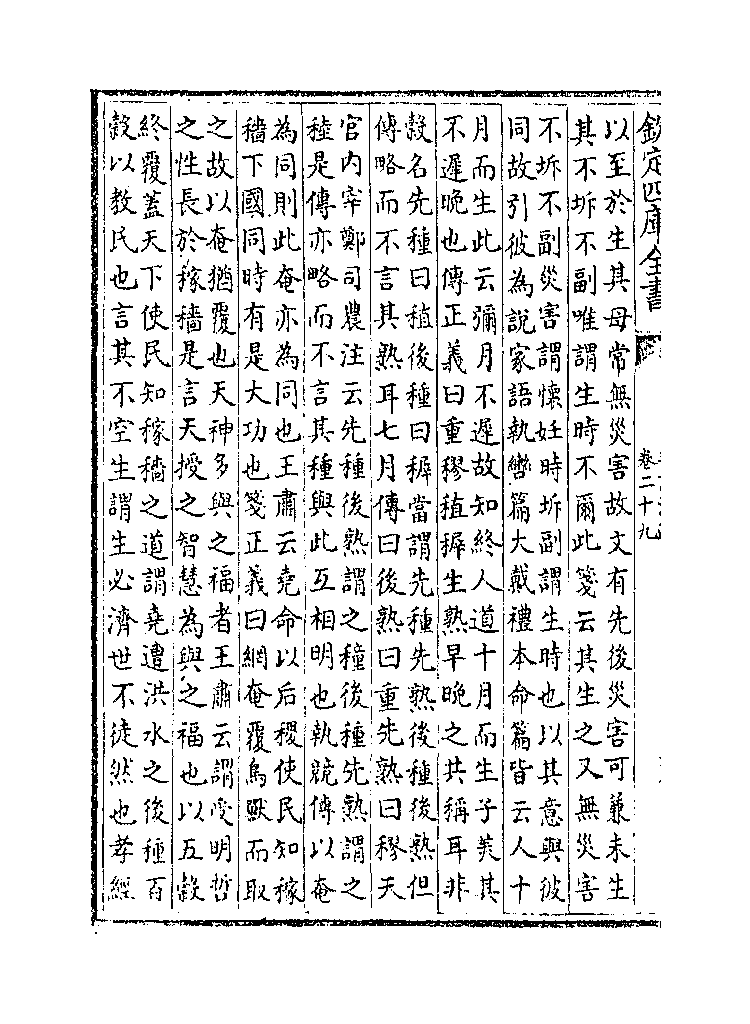 欽定四庫全書
卷二十九
以至於生其母常無災害故文有先後災害可兼未生
其不坼不副唯謂生時不爾此箋云其生之又無災害
不坼不副災害謂懷妊時坼副謂生時也以其意與彼
同故引彼為說家語執轡篇大戴禮本命篇皆云人十
月而生此云彌月不遲故知終人道十月而生子美其
不遲晚也傳正義曰重穋稙穉生熟早晚之共稱耳非
穀名先種曰稙後種曰穉當謂先種先熟後種後熟但
傳略而不言其熟耳七月傳曰後熟曰重先熟曰穋天
官内宰鄭司農注云先種後熟謂之穜後種先熟謂之
稑是傳亦略而不言其種與此互相明也執競傳以奄
為同則此奄亦為同也王肅云堯命以后稷使民知稼
穡下國同時有是大功也箋正義曰網奄覆鳥獸而取
之故以奄猶覆也天神多與之福者王肅云謂受明哲
之性長於稼穡是言天授之智慧為與之福也以五穀
終覆蓋天下使民知稼穡之道謂堯遭洪水之後種百
穀以教民也言其不空生謂生必濟世不徒然也孝經